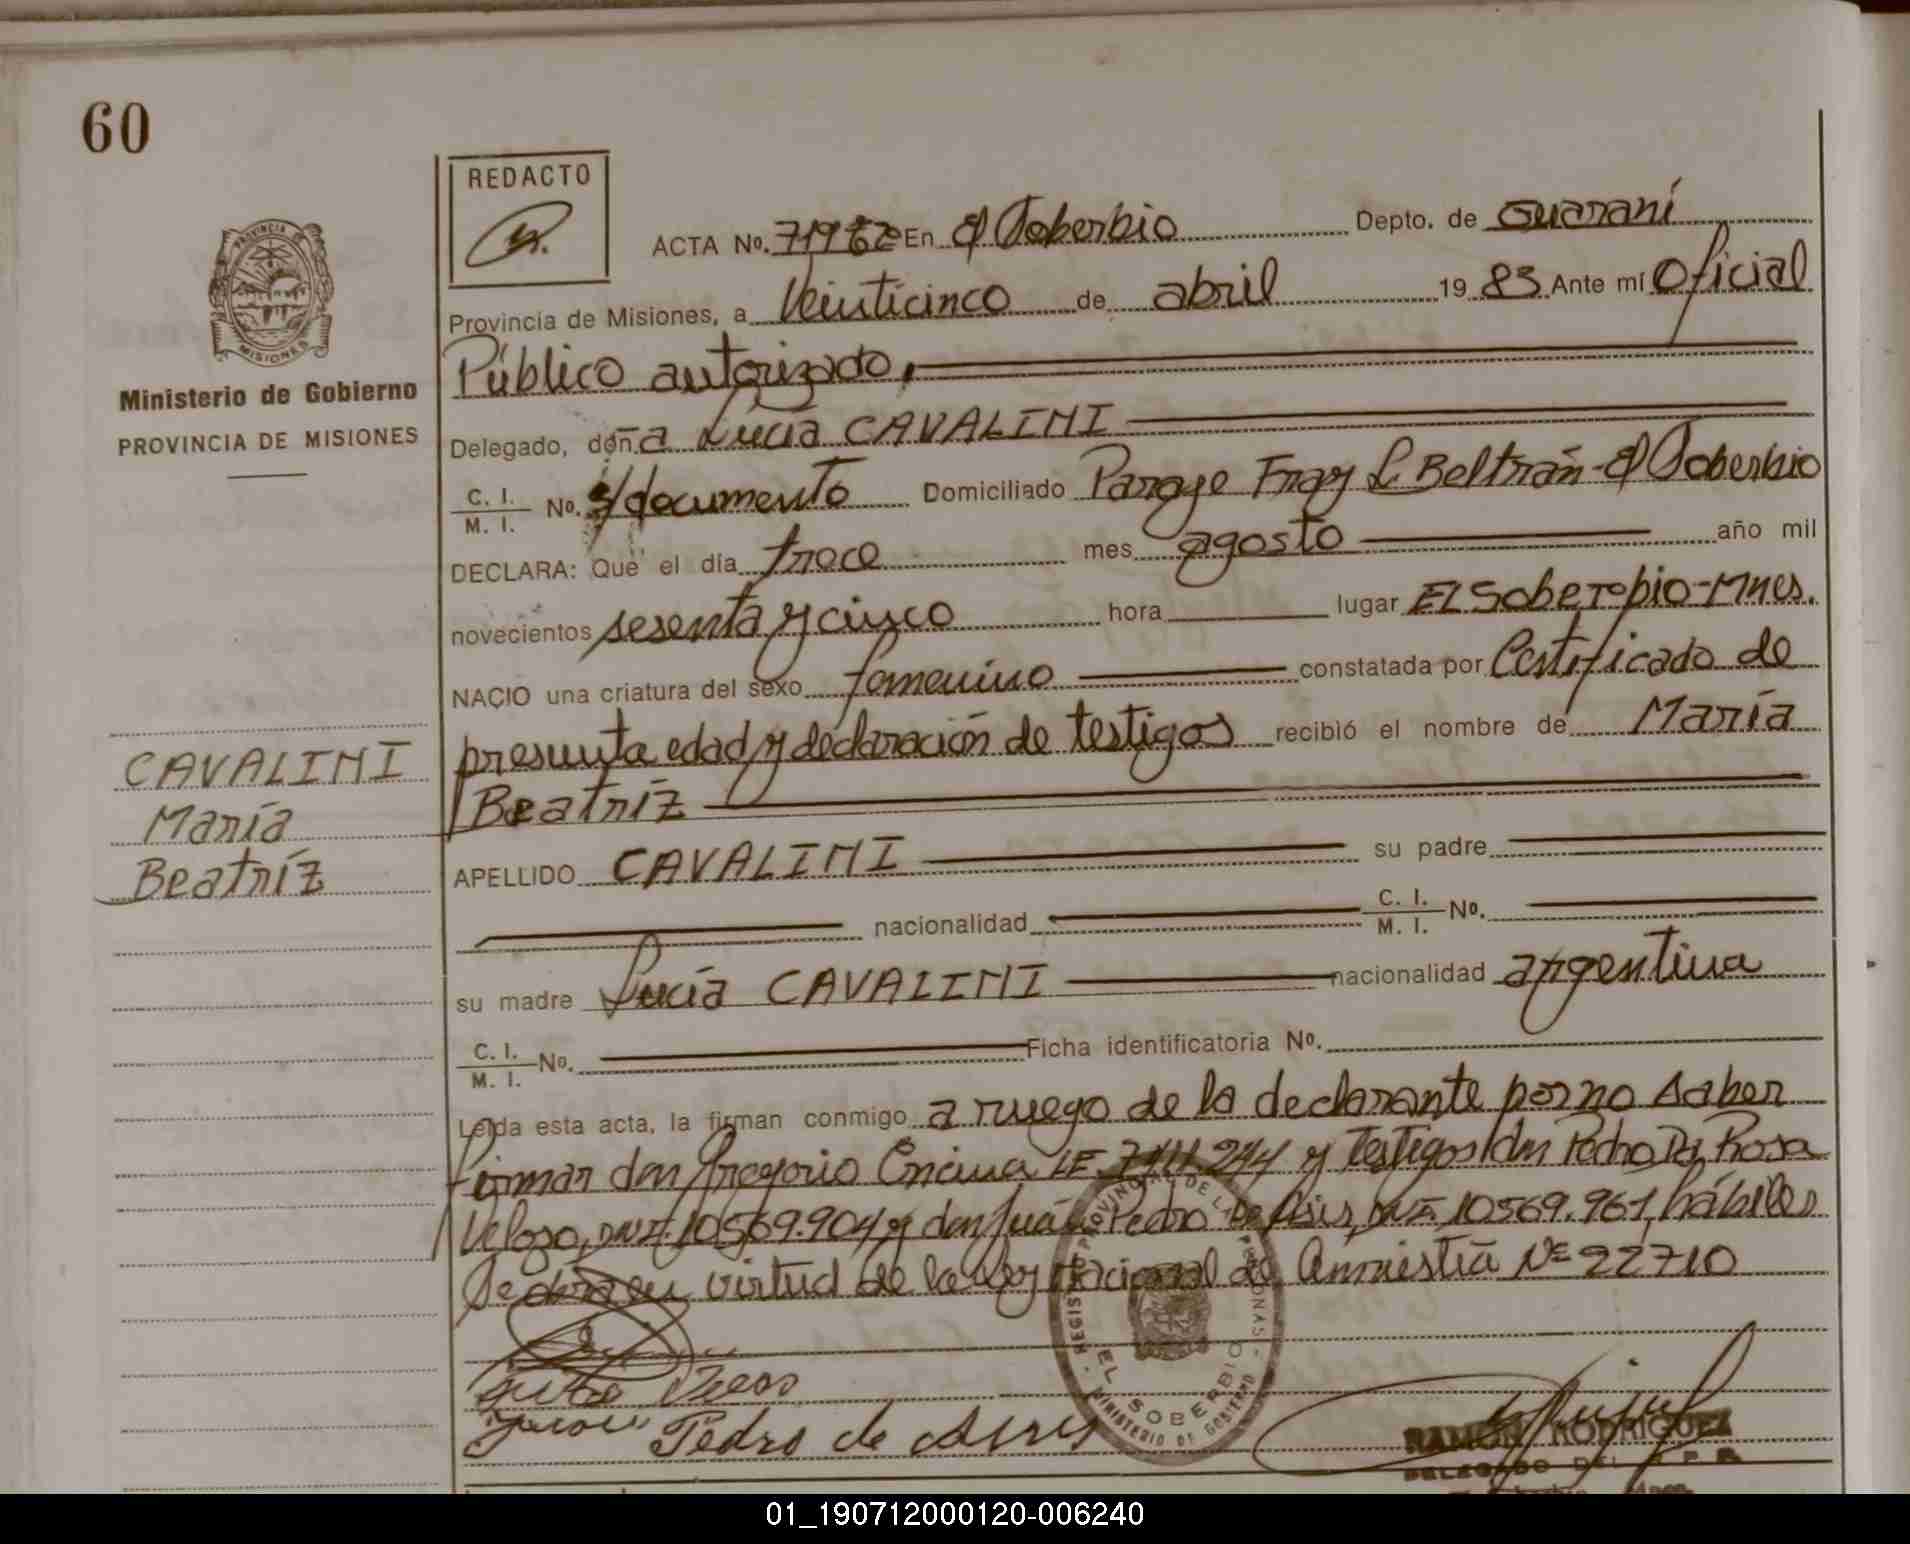 60
REDACTO
PROVINCIA DE
MISIONES
Ministerio de Gobierno
PROVINCIA DE MISIONES
ACTA No. En El Soberbio Depto. de Guaraní
Provincia de Misiones, a Veinticinco de abril 19 83 Ante mí Oficial
Público autorizado,
Delegado, doña Lucía CAVALINI
C. I.
M. I. No. s/documento Domiciliado Paraje Fray L. Beltrán-El Soberbio
DECLARA: Que el día trece mes agosto año mil
novecientos sesenta y cinco hora lugar El Soberbio-Mnes.
NACIO una criatura del sexo femenino constatada por Certificado de
presunta edad y declaración de testigos recibió el nombre de María
Beatríz
CAVALINI
María
Beatríz
APELLIDO CAVALINI su padre
nacionalidad C. I.
M. I. No.
su madre Lucía CAVALINI nacionalidad argentina
C. I.
M. I. No. Ficha identificatoria No.
Leída esta acta, la firman conmigo a ruego de la declarante por no saber
firmar don Gregorio Encina LE. 7.411.244 y testigos don Pedro Da Rosa
Velozo, DNI. 10.569.904 y don Juan Pedro De Asis, DNI. 10569.961, hábiles
en virtud de la Ley Nacional de Amnistía Nº 22710
REGISTRO PROVINCIAL DE LAS PERSONAS
EL SOBERBIO
MINISTERIO DE GOBIERNO
Pedro de
RAMON RODRIGUEZ
DELEGADO DEL R. P. P.
01_190712000120-006240